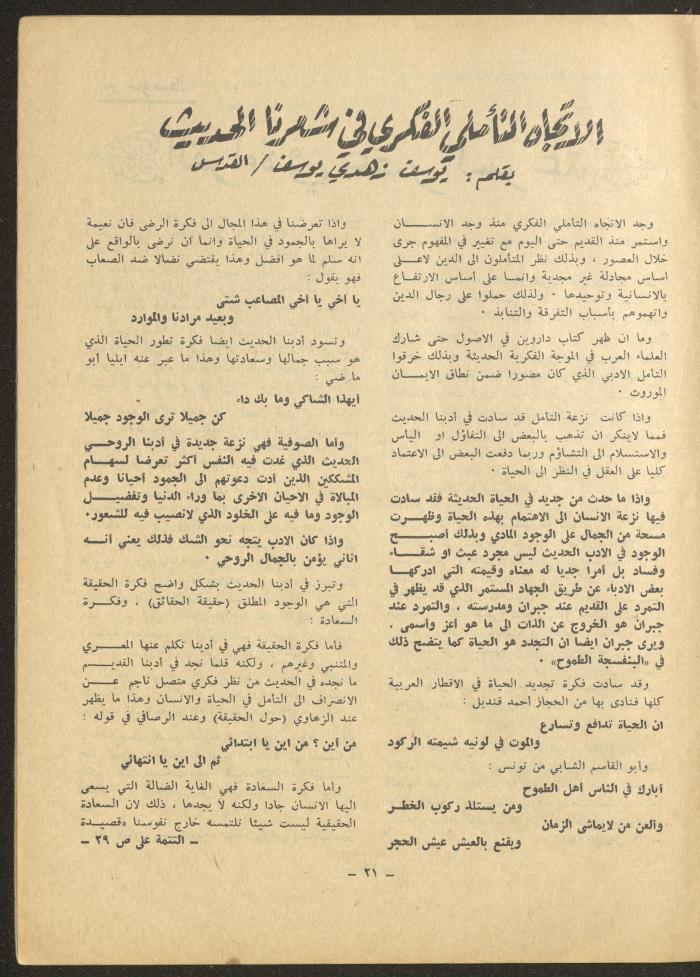 الاتجاه التأملي الفكري في شعرنا الحديث
بقلم : يوسف زهدي يوسف / القدس
وجد الاتجاه التأملي الفكري منذ وجد الانســـــان
واستمر منذ القديم حتى اليوم مع تغيير في المفهوم جرى
خلال العصور ، وبذلك نظر المتأملون الى الدين لاعـــلى
أساس مجادلة غير مجدية وانمـا على أساس الارتفـاع
بالانسانية وتوحيدها ٠ ولذلك حملوا على رجال الدين
واتهموهم بأسباب التفرقة والتنابذ ٠
وما ان ظهر كتاب داروين في الاصول حتى شارك
العلماء العرب في الموجة الفكرية الحديثة وبذلك خرقوا
التأمل الادبي الذي كان مصورا ضمن نطاق الايمـــان
الموروث ٠
واذا كانت نزعة التأمل قد سادت في أدبنا الحديث
فمما لاينكر ان تذهب بالبعض الى التفاؤل او اليأس
والاستسلام الى التشاؤم وربما دفعت البعض الى الاعتماد
كليا على العقل في النظر الى الحياة ٠
واذا ما حدث من جديد في الحياة الحديثة فقد سادت
فيها نزعة الانسان الى الاهتمام بهذه الحياة وظهـــرت
مسحة من الجمال على الوجود المادي وبذلك أصبـــح
الوجود في الادب الحديث ليس مجرد عبث او شقـــاء
وفساد بل أمرا جديا له معناه وقيمته التي ادركهـا
بعض الادباء عن طريق الجهاد المستمر الذي قد يظهر في
التمرد على القديم عند جبران ومدرسته ، والتمرد عند
جبران هو الخروج عن الذات الى ما هو أعز وأسمى ،
ويرى جبران ايضا ان التجدد هو الحياة كما يتضح ذلك
في «البنفسجة الطموح» ٠
وقد سادت فكرة تجديد الحياة في الاقطار العربية
كلها فنادى بها من الحجاز أحمد قنديل :
ان الحياة تدافع وتسارع
والموت في لونيه شيمته الركود
وأبو القاسم الشابي من تونس :
أبارك في الناس أهل الطموح
ومن يستلذ ركوب الخطـر
وألعن من لايماشى الزمان
ويقنع بالعيش عيش الحجر
واذا تعرضنا في هذا المجال الى فكرة الرضى فان نعيمة
لا يراها بالجمود في الحياة وانما ان نرضى بالواقع على
انه سلم لما هو افضل وهذا يقتضي نضالا ضد الصعاب
فهو يقول :
يا أخي يا أخي المصاعب شتى
وبعيد مرادنا والموارد
وتسود أدبنا الحديث ايضا فكرة تطور الحياة الذي
هو سبب جمالها وسعادتها وهذا ما عبر عنه ايليا أبو
ما ضي :
أيهذا الشاكي وما بك داء
كن جميلا ترى الوجود جميلا
وأما الصوفية فهي نزعة جديدة في أدبنا الروحـــي
الحديث الذي غدت فيه النفس أكثر تعرضا لسهـــام
المشككين الذين ادت دعوتهم الى الجمود أحيانا وعدم
المبالاة في الاحيان الاخرى بما وراء الدنيا وتفضيـــل
الوجود وما فيه على الخلود الذي لانصيب فيه للشعور٠
واذا كان الادب يتجه نحو الشك فذلك يعني أنـــه
اناني يؤمن بالجمال الروحي ٠
وتبرز في أدبنا الحديث بشكل واضح فكرة الحقيقة
التي هي الوجود المطلق (حقيقة الحقائق) ، وفكـــرة
السعادة :
فأما فكرة الحقيقة فهي في أدبنا تكلم عنها المعـــري
والمتنبي وغيرهم ، ولكنه قلما نجد في أدبنا القديـــم
ما نجده في الحديث من نظر فكري متصل ناجم عـــن
الانصراف الى التأمل في الحياة والانسان وهذا ما يظهر
عند الزهاوي (حول الحقيقة) وعند الرصافي في قوله :
من أين ؟ من اين يا ابتدائي
ثم الى اين يا انتهائي
وأما فكرة السعادة فهي الغاية الضالة التي يسعى
اليها الانسان جادا ولكنه لا يجدها ، ذلك لان السعادة
الحقيقية ليست شيئا نلتمسه خارج نفوسنا «قصيـدة
ـ التتمة على ص ٣٩ ـ
ـ ٢١ ـ